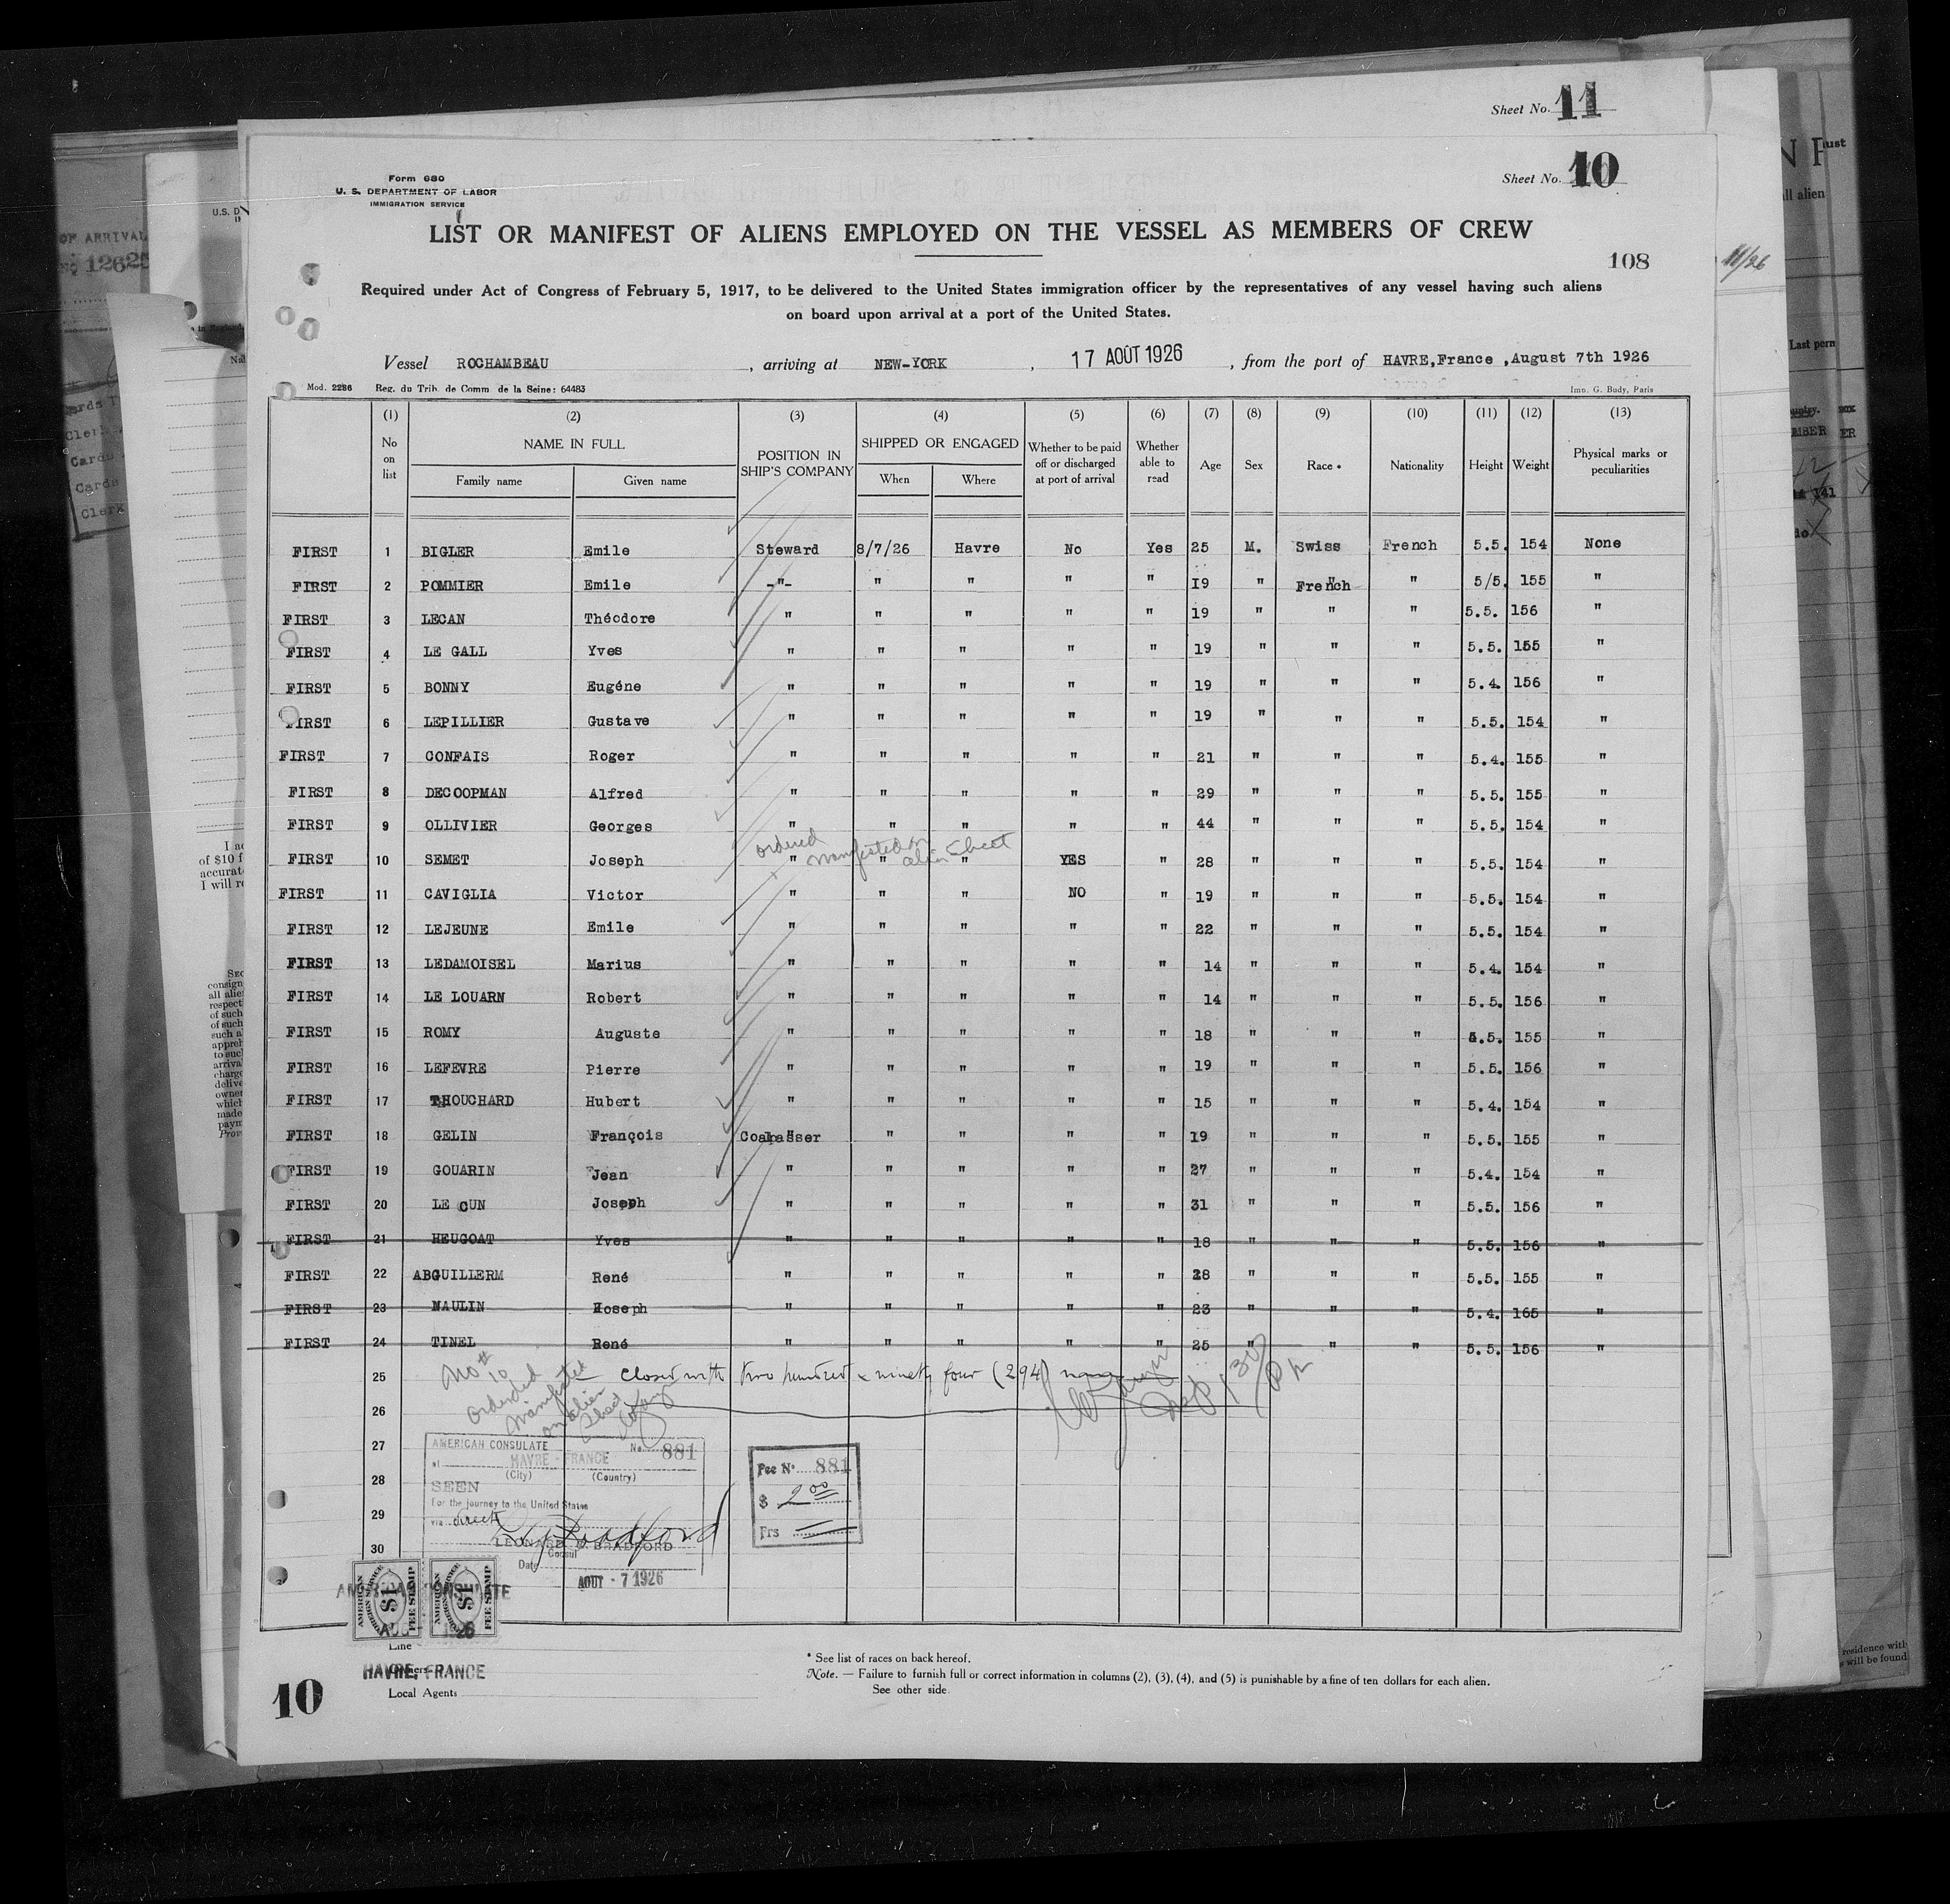 Sheet No. 11
Sheet No. 10
Form 680
U. S. DEPARTMENT OF LABOR
IMMIGRATION SERVICE
LIST OR MANIFEST OF ALIENS EMPLOYED ON THE VESSEL AS MEMBERS OF CREW
108
Required under Act of Congress of February 5, 1917, to be delivered to the United States immigration officer by the representatives of any vessel having such aliens
on board upon arrival at a port of the United States.
Vessel ROCHAMBEAU, arriving at NEW-YORK, 17 AOÛT 1926, from the port of HAVRE, France, August 7th 1926
Mod. 2286 Reg. du Trib. de Comm. de la Seine: 64483 Imp. G. Budy, Paris
(1) (2) (3) (4) (5) (6) (7) (8) (9) (10) (11) (12) (13)
No on list NAME IN FULL Family name Given name POSITION IN SHIP'S COMPANY SHIPPED OR ENGAGED When Where Whether to be paid off or discharged at port of arrival Whether able to read Age Sex Race * Nationality Height Weight Physical marks or peculiarities
FIRST 1 BIGLER Emile Steward 8/7/26 Havre No Yes 25 M. Swiss French 5.5. 154 None
FIRST 2 POMMIER Emile -"- " " " " 19 " French " 5/5. 155 "
FIRST 3 LECAN Théodore " " " " " 19 " " " 5.5. 156 "
FIRST 4 LE GALL Yves " " " " " 19 " " " 5.5. 155 "
FIRST 5 BONNY Eugéne " " " " " 19 " " " 5.4. 156 "
FIRST 6 LEPILLIER Gustave " " " " " 19 " " " 5.5. 154 "
FIRST 7 CONFAIS Roger " " " " " 21 " " " 5.4. 155 "
FIRST 8 DECOOPMAN Alfred " " " " " 29 " " " 5.5. 155 "
FIRST 9 OLLIVIER Georges " " " " " 44 " " " 5.5. 154 "
ordered manifested on alien sheet
FIRST 10 SEMET Joseph " " " YES " 28 " " " 5.5. 154 "
FIRST 11 CAVIGLIA Victor " " " NO " 19 " " " 5.5. 154 "
FIRST 12 LEJEUNE Emile " " " " " 22 " " " 5.5. 154 "
FIRST 13 LEDAMOISEL Marius " " " " " 14 " " " 5.4. 154 "
FIRST 14 LE LOUARN Robert " " " " " 14 " " " 5.5. 156 "
FIRST 15 ROMY Auguste " " " " " 18 " " " 5.5. 155 "
FIRST 16 LEFEVRE Pierre " " " " " 19 " " " 5.5. 156 "
FIRST 17 THOUCHARD Hubert " " " " " 15 " " " 5.4. 154 "
FIRST 18 GELIN François Coalpasser " " " " 19 " " " 5.5. 155 "
FIRST 19 GOUARIN Jean " " " " " 27 " " " 5.4. 154 "
FIRST 20 LE CUN Joseph " " " " " 31 " " " 5.5. 156 "
FIRST 21 HEUGOAT Yves " " " " " 18 " " " 5.5. 156 "
FIRST 22 ABGUILLERM René " " " " " 28 " " " 5.5. 155 "
FIRST 23 NAULIN Joseph " " " " " 23 " " " 5.4. 165 "
FIRST 24 TINEL René " " " " " 25 " " " 5.5. 156 "
25 Closed with two hundred & ninety four (294)
No # 10 ordered manifested on alien sheet
26
27
28
29
30
AMERICAN CONSULATE No. 881
at HAVRE - FRANCE
(City) (Country)
SEEN
For the journey to the United States
via direct
LEONARD G. BRADFORD
Consul
Date AOUT - 7 1926
Fee No. 881
$ 2.00
Frs
AMERICAN FOREIGN SERVICE $1 FEE STAMP
AMERICAN FOREIGN SERVICE $1 FEE STAMP
AMERICAN CONSULATE
AUG 1926
HAVRE, FRANCE
Line
Owners
Local Agents
* See list of races on back hereof.
Note. — Failure to furnish full or correct information in columns (2), (3), (4), and (5) is punishable by a fine of ten dollars for each alien.
See other side.
10